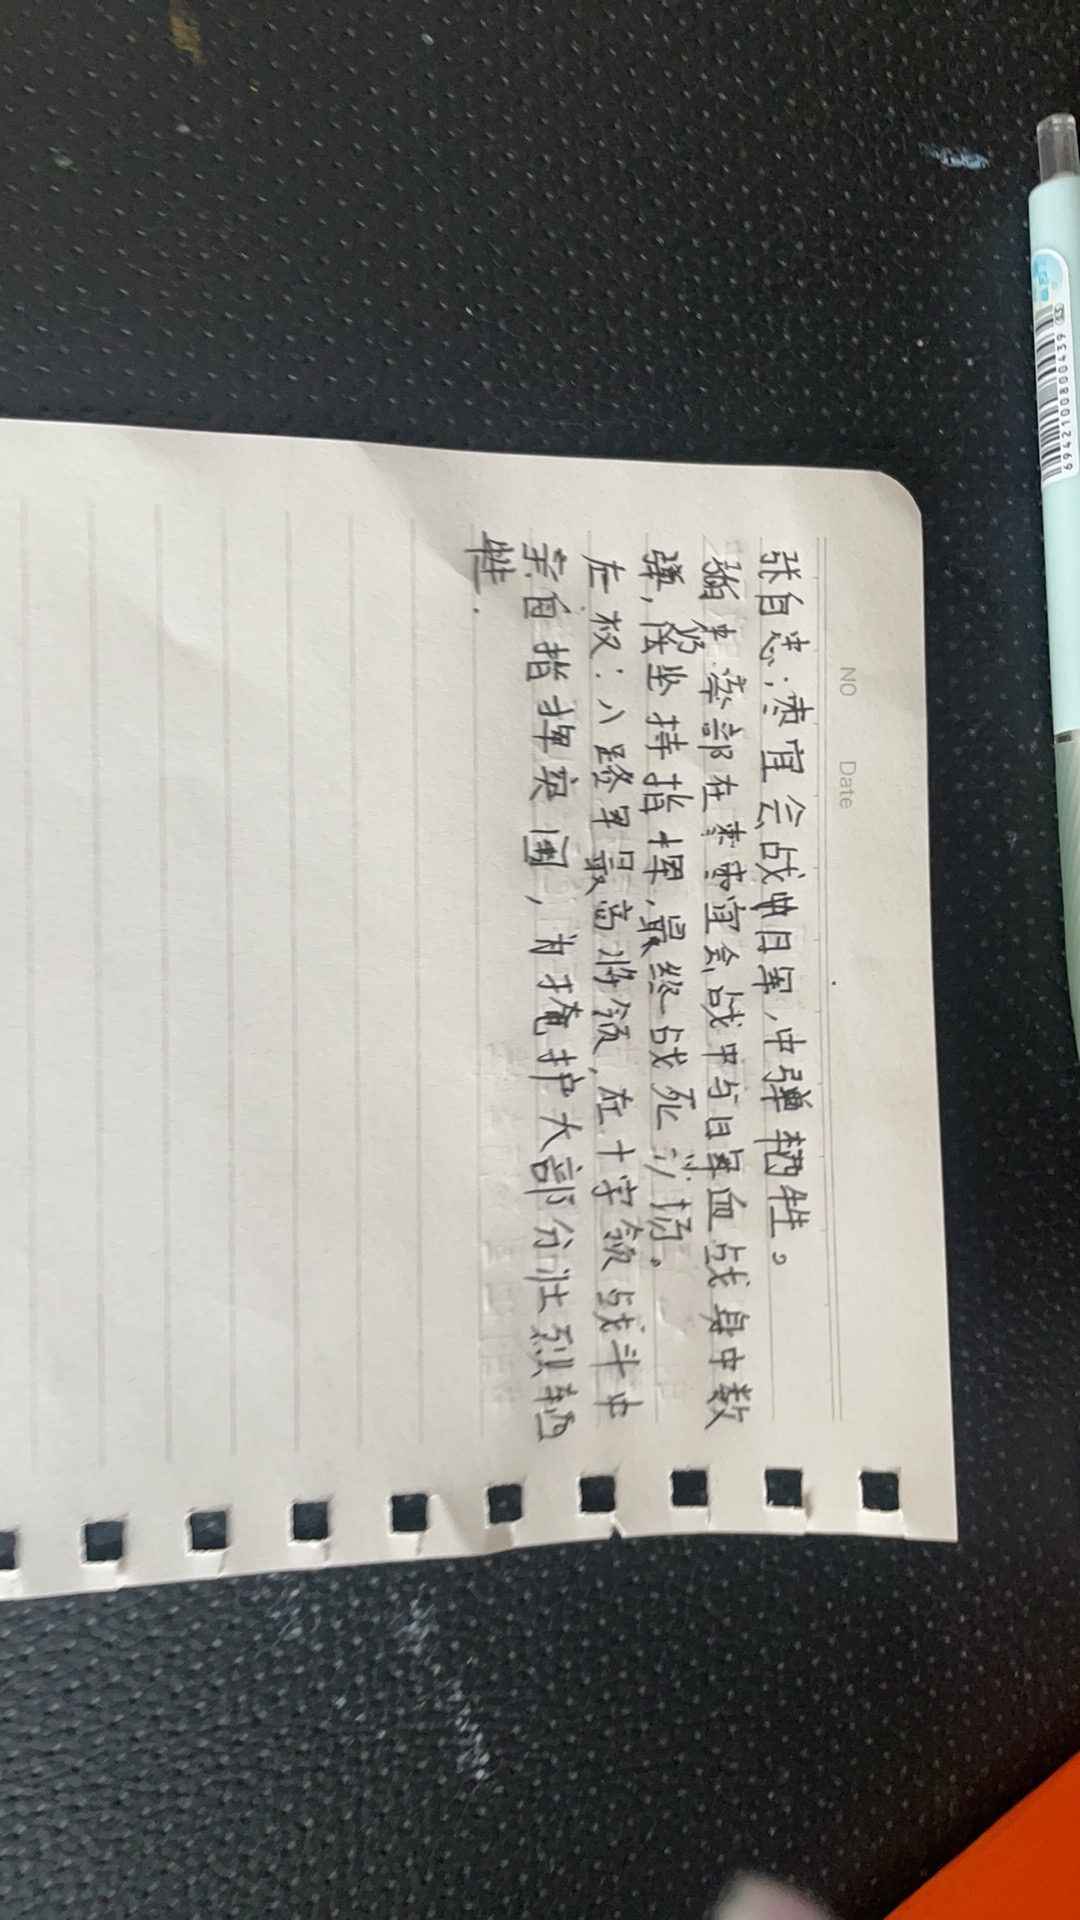 NO Date
张自忠:枣宜会战中日军,中弹牺牲。
率部在枣宜会战中与日军血战身中数
弹,仍坚持指挥,最终战死沙场。
左权:八路军最高将领,在十字领战斗中
亲自指挥突围,为掩护大部分壮烈牺
牲.
6942100800439